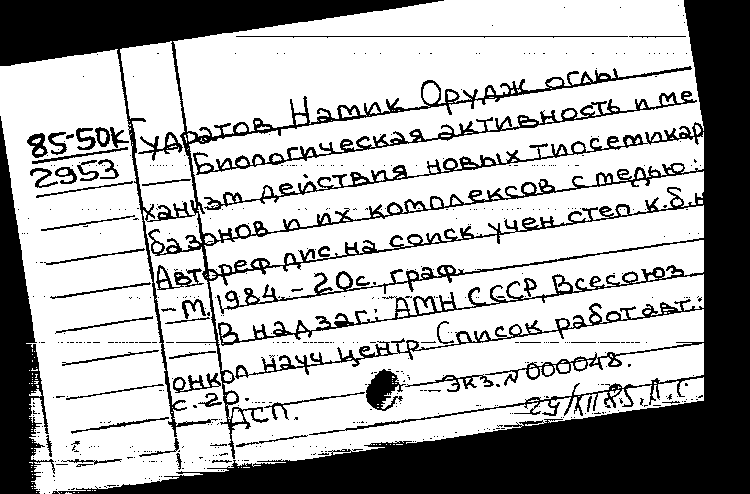 85-50к
2953
Гудратов, Намик Орудж оглы
Биологическая активность и ме
ханизм действия новых тиосемикар
базонов и их комплексов с медью:
Автореф. дис. на соиск. учен. степ. к.б.н
-М., 1984. - 20с., граф.
В надзаг.: АМН СССР, Всесоюз
онкол науч центр. Список работ авт.:
с. 20.
ДСП.
Экз. № 000048.
29/XII 85. Л.С